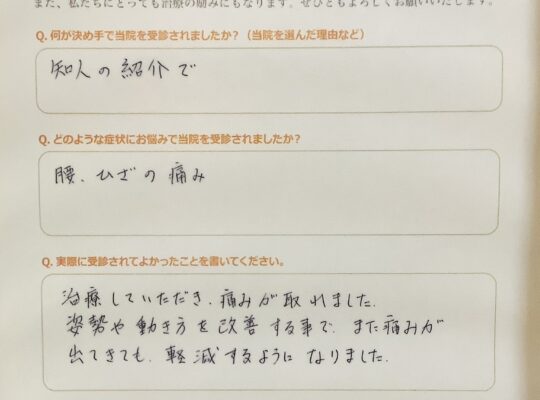 また、私たちにとっても治療の励みにもなります。ぜひともよろしくお願いいたします。
Q. 何が決め手で当院を受診されましたか？（当院を選んだ理由など）
知人の紹介で
Q. どのような症状にお悩みで当院を受診されましたか？
腰、ひざの痛み
Q. 実際に受診されてよかったことを書いてください。
治療していただき、痛みが取れました。
姿勢や動き方を改善する事で、また痛みが
出てきても、軽減するようになりました。